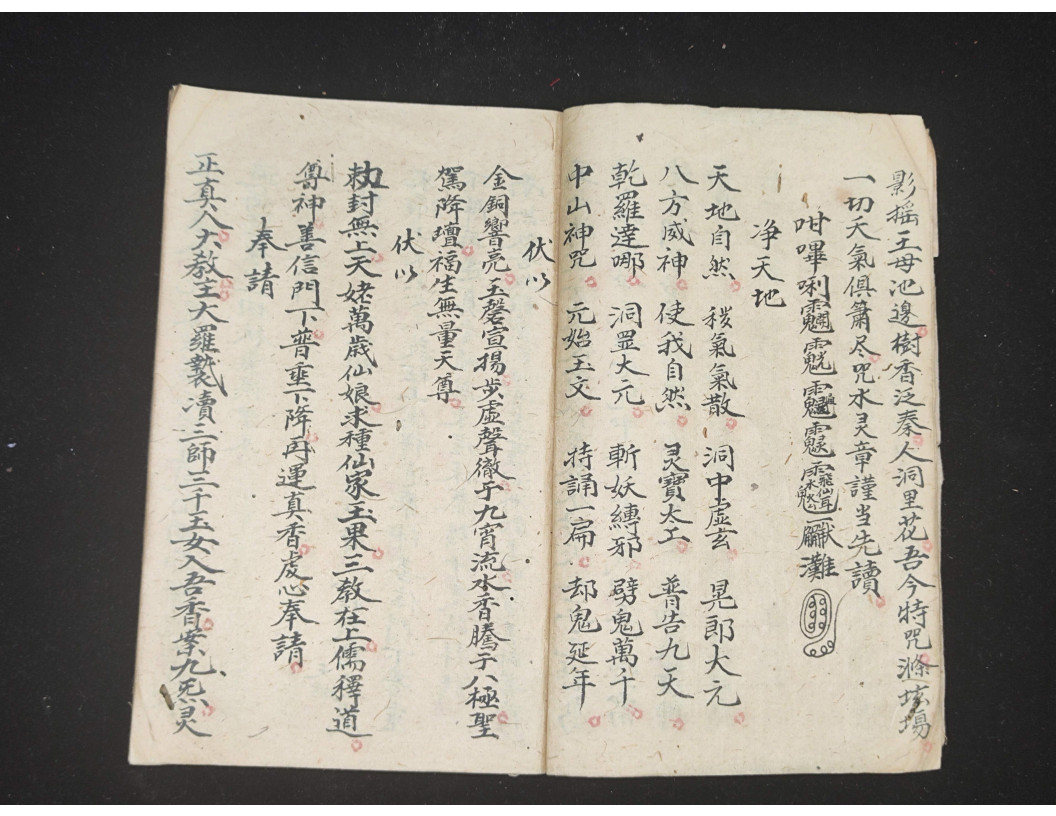 影摇王母池邊樹香泛秦人洞里花吾今特咒滌坛塲
一切夭氣俱簫尽咒水灵章謹当先讀
咁嗶唎灘
净天地
天地自然 秽氣氣散 洞中虛玄 晃郎大元
八方威神 使我自然 灵寶太工 普告九天
乾羅達哪 洞罡大元 斬妖縛邪 劈鬼萬千
中山神咒 元始玉文 持誦一扁 却鬼延年
伏以
金銅響亮玉磬宣揚步虛聲徹于九宵流水香騰于八極聖
駕降壇福生無量天尊
伏以
勅封無上天姥萬歳仙娘求種仙家玉果三教在上儒釋道
尊神善信門下普垂下降再運真香虔心奉請
奉請
正真八大教主大羅瀆三師三千玉女入吾香案九炁灵